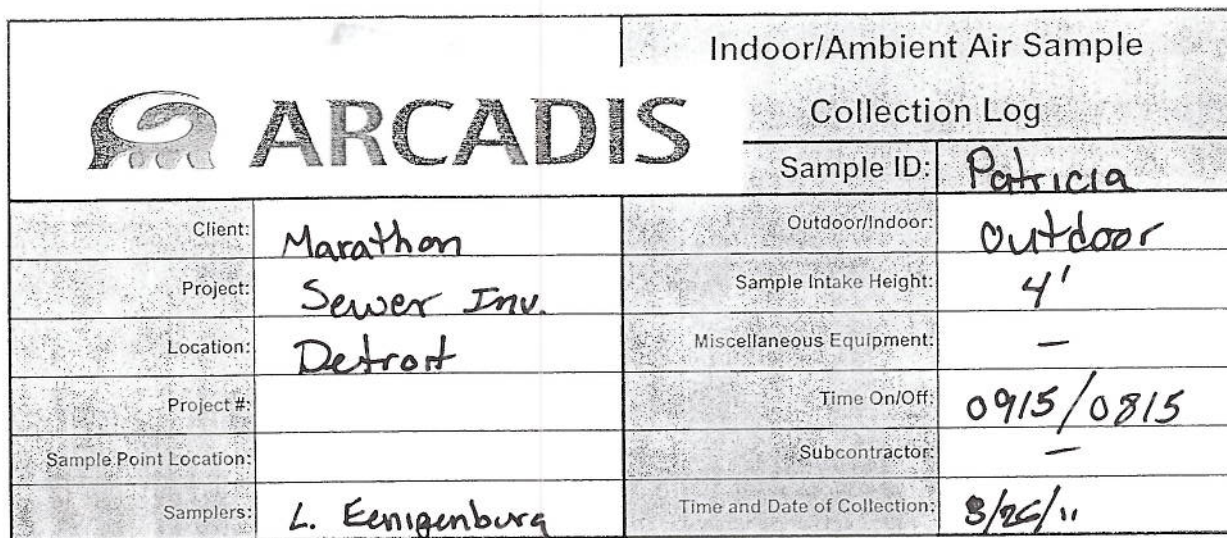 ARCADIS
Indoor/Ambient Air Sample
Collection Log
Sample ID: Patricia
Client: Marathon
Outdoor/Indoor: Outdoor
Project: Sewer Inv.
Sample Intake Height: 4'
Location: Detroit
Miscellaneous Equipment: —
Project #:
Time On/Off: 0915/0815
Sample Point Location:
Subcontractor: —
Samplers: L. Eenigenburg
Time and Date of Collection: 3/26/11